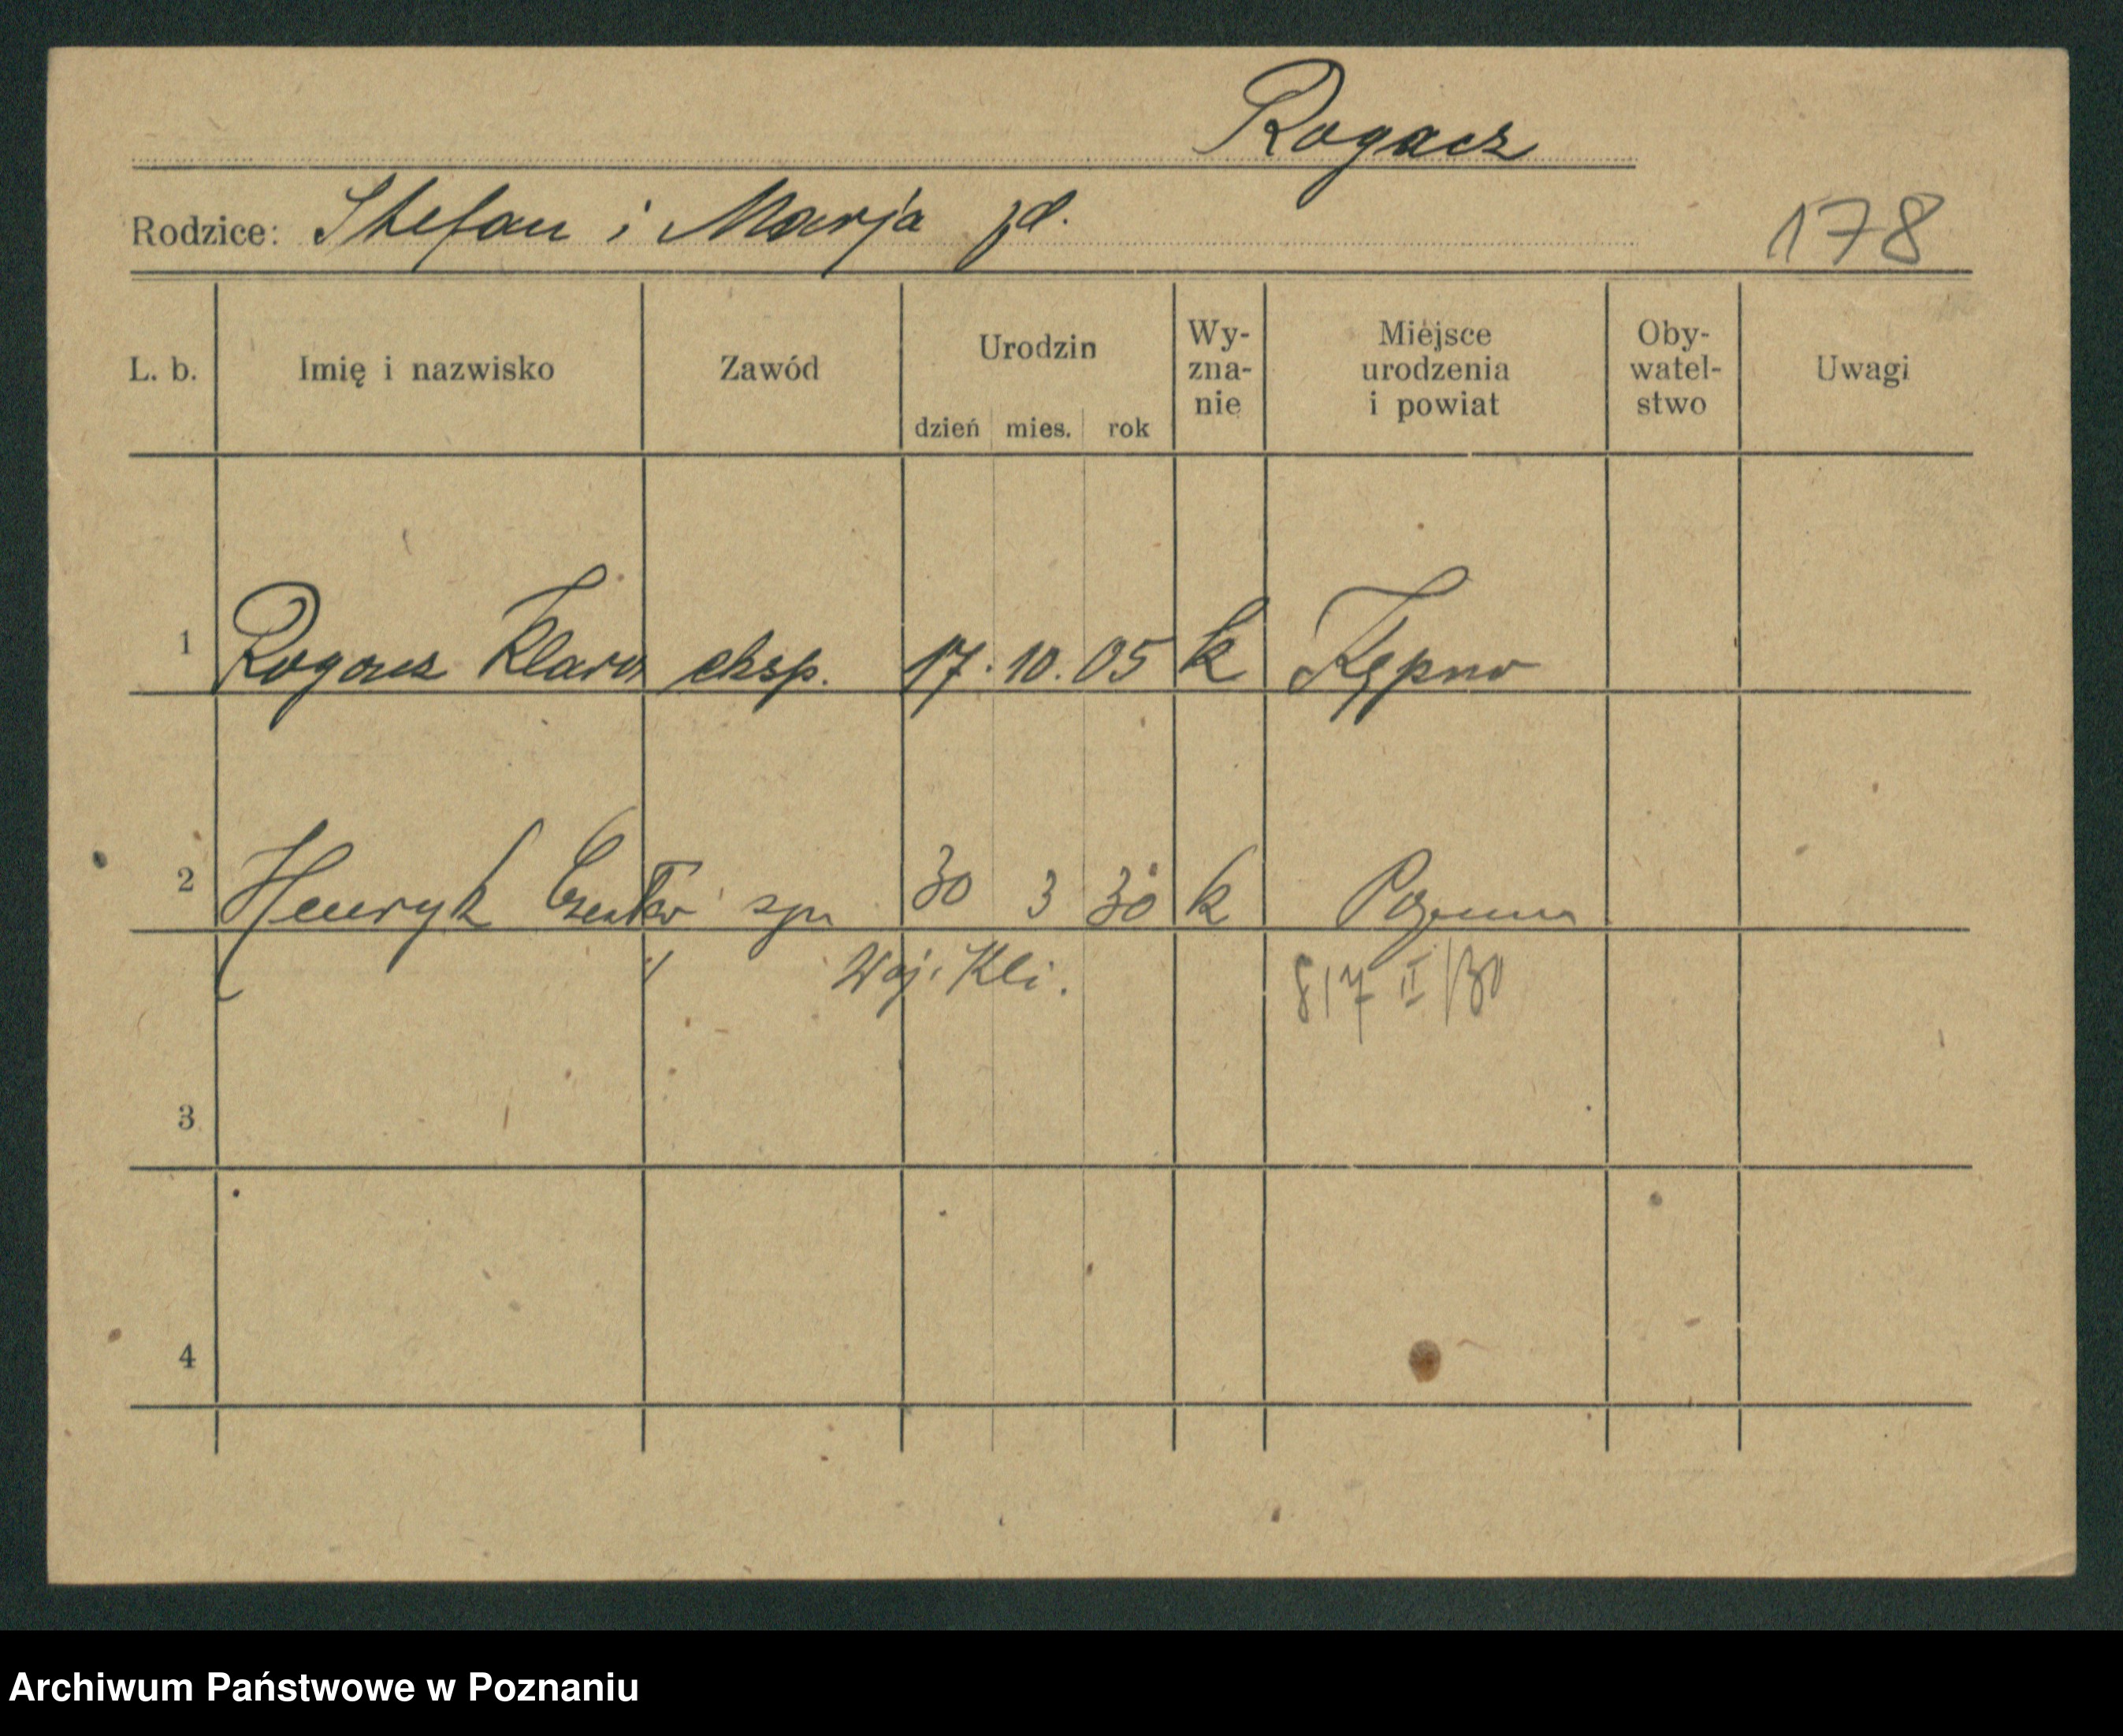 Rogacz
Rodzice: Stefan i Marja jd.
178
L. b. Imię i nazwisko Zawód Urodzin dzień mies. rok Wy-zna-nie Miejsce urodzenia i powiat Oby-watel-stwo Uwagi
1 Rogacz Klara eksp. 17. 10. 05 k Kępno
2 Henryk syn 30 3 30 k Poznań
Woj. Kli. 817 II/30
3
4
Archiwum Państwowe w Poznaniu